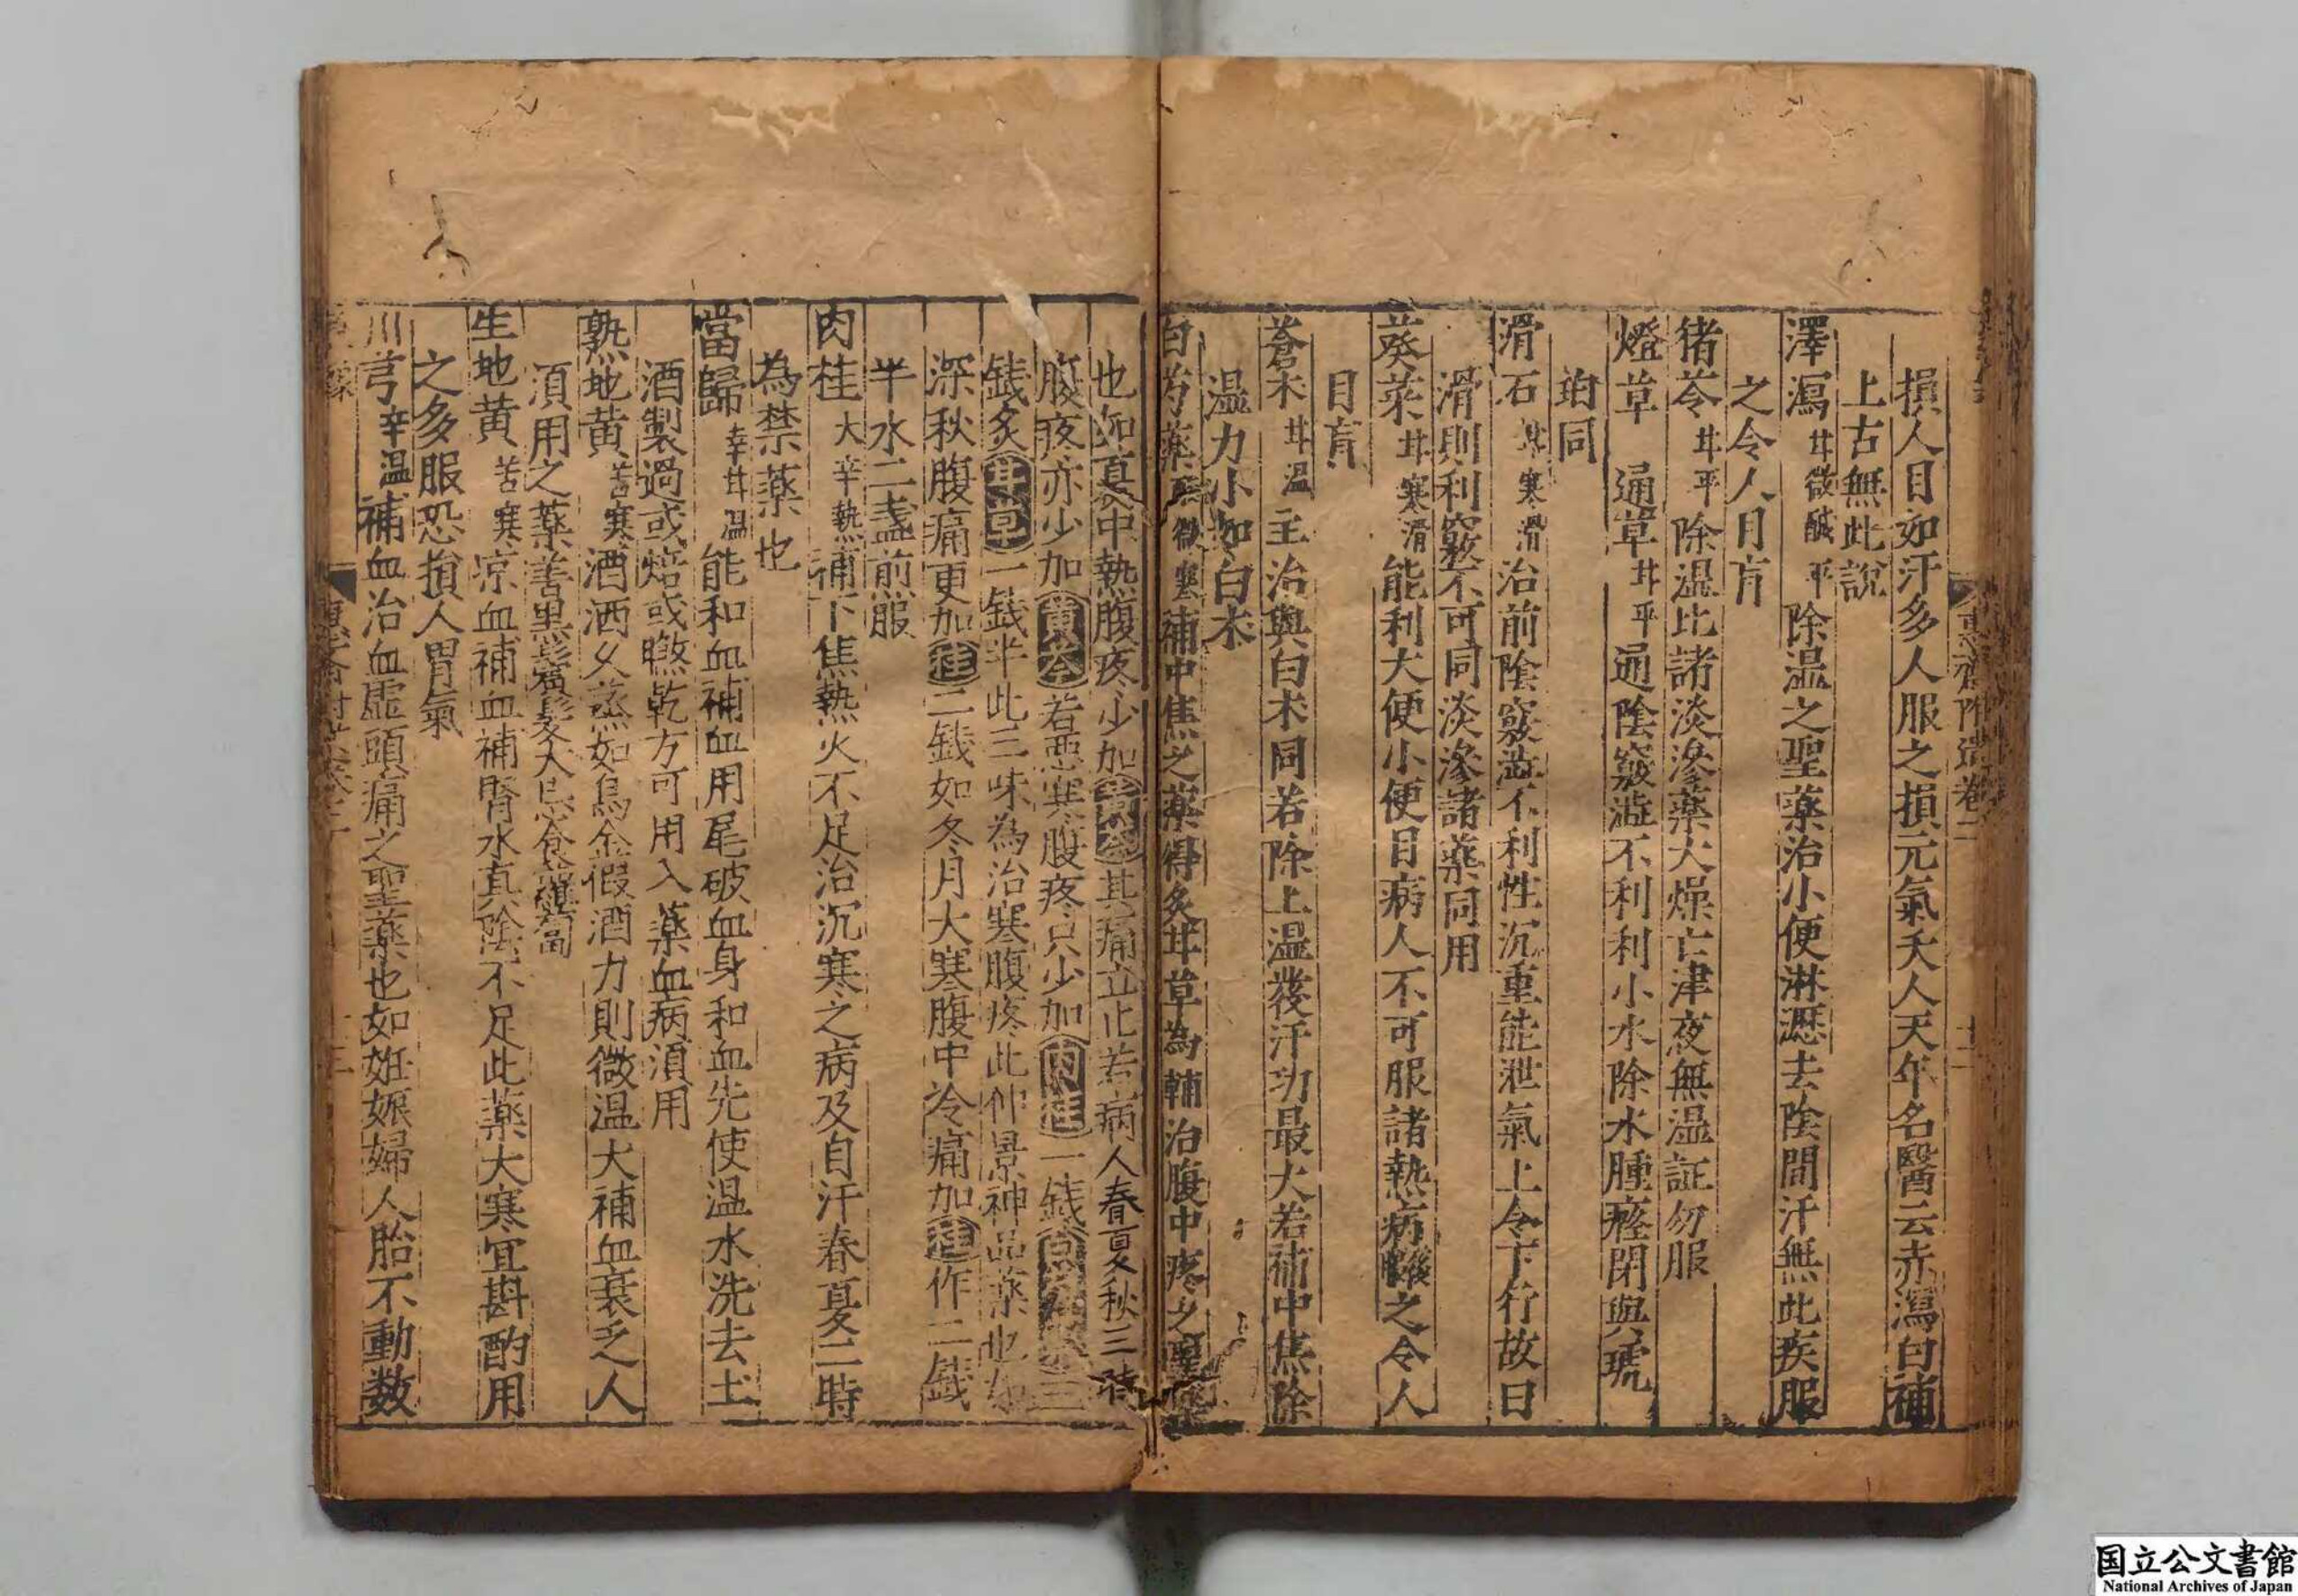 損人目如汗多人服之損元氣夭人天年名醫云赤瀉白補
上古無此說
澤瀉甘微鹹平除温之聖藥治小便淋瀝去陰間汗無此疾服
之令人目肓
猪苓甘平除温比諸淡滲藥大燥亡津夜無温証勿服
燈草 通草甘平通陰竅澁不利利小水除水腫癃閉與琥
珀同
滑石甘寒滑治前陰竅澁不利性沉重能泄氣上令下行故曰
滑則利竅不可同淡滲諸藥同用
葵菜甘寒滑能利大便小便日病人不可服諸熱病後之令人
目肓
蒼朮甘温主治與白朮同若除上温發汗功最大若補中焦除
温力小如白朮
白芍藥酸微寒補中焦之藥得炙甘草為輔治腹中疼之聖藥
也如夏中熱腹疼少加黄芩其痛立止若病人春夏秋三時
腹疼亦少加黄芩若惡寒腹疼只少加肉桂一錢白芍藥三
錢炙甘草一錢半此三味為治寒腹疼此仲景神品藥也如
深秋腹痛更加桂二錢如冬月大寒腹中冷痛加桂作二錢
半水二盞煎服
肉桂大辛熱補下焦熱火不足治沉寒之病及自汗春夏二時
為禁藥也
當歸辛甘温能和血補血用尾破血身和血先使温水洗去土
酒製過或焙或㬠乾方可用入藥血病湏用
熟地黄苦寒酒洒久蒸如烏金假酒力則微温大補血衰乏人
湏用之藥善黒鬚髮大忌食蘿蔔
生地黄苦寒凉血補血補腎水真陰不足此藥大寒宜斟酌用
之多服恐損人胃氣
川芎辛温補血治血虛頭痛之聖藥也如姙娠婦人胎不動数
国立公文書館
National Archives of Japan